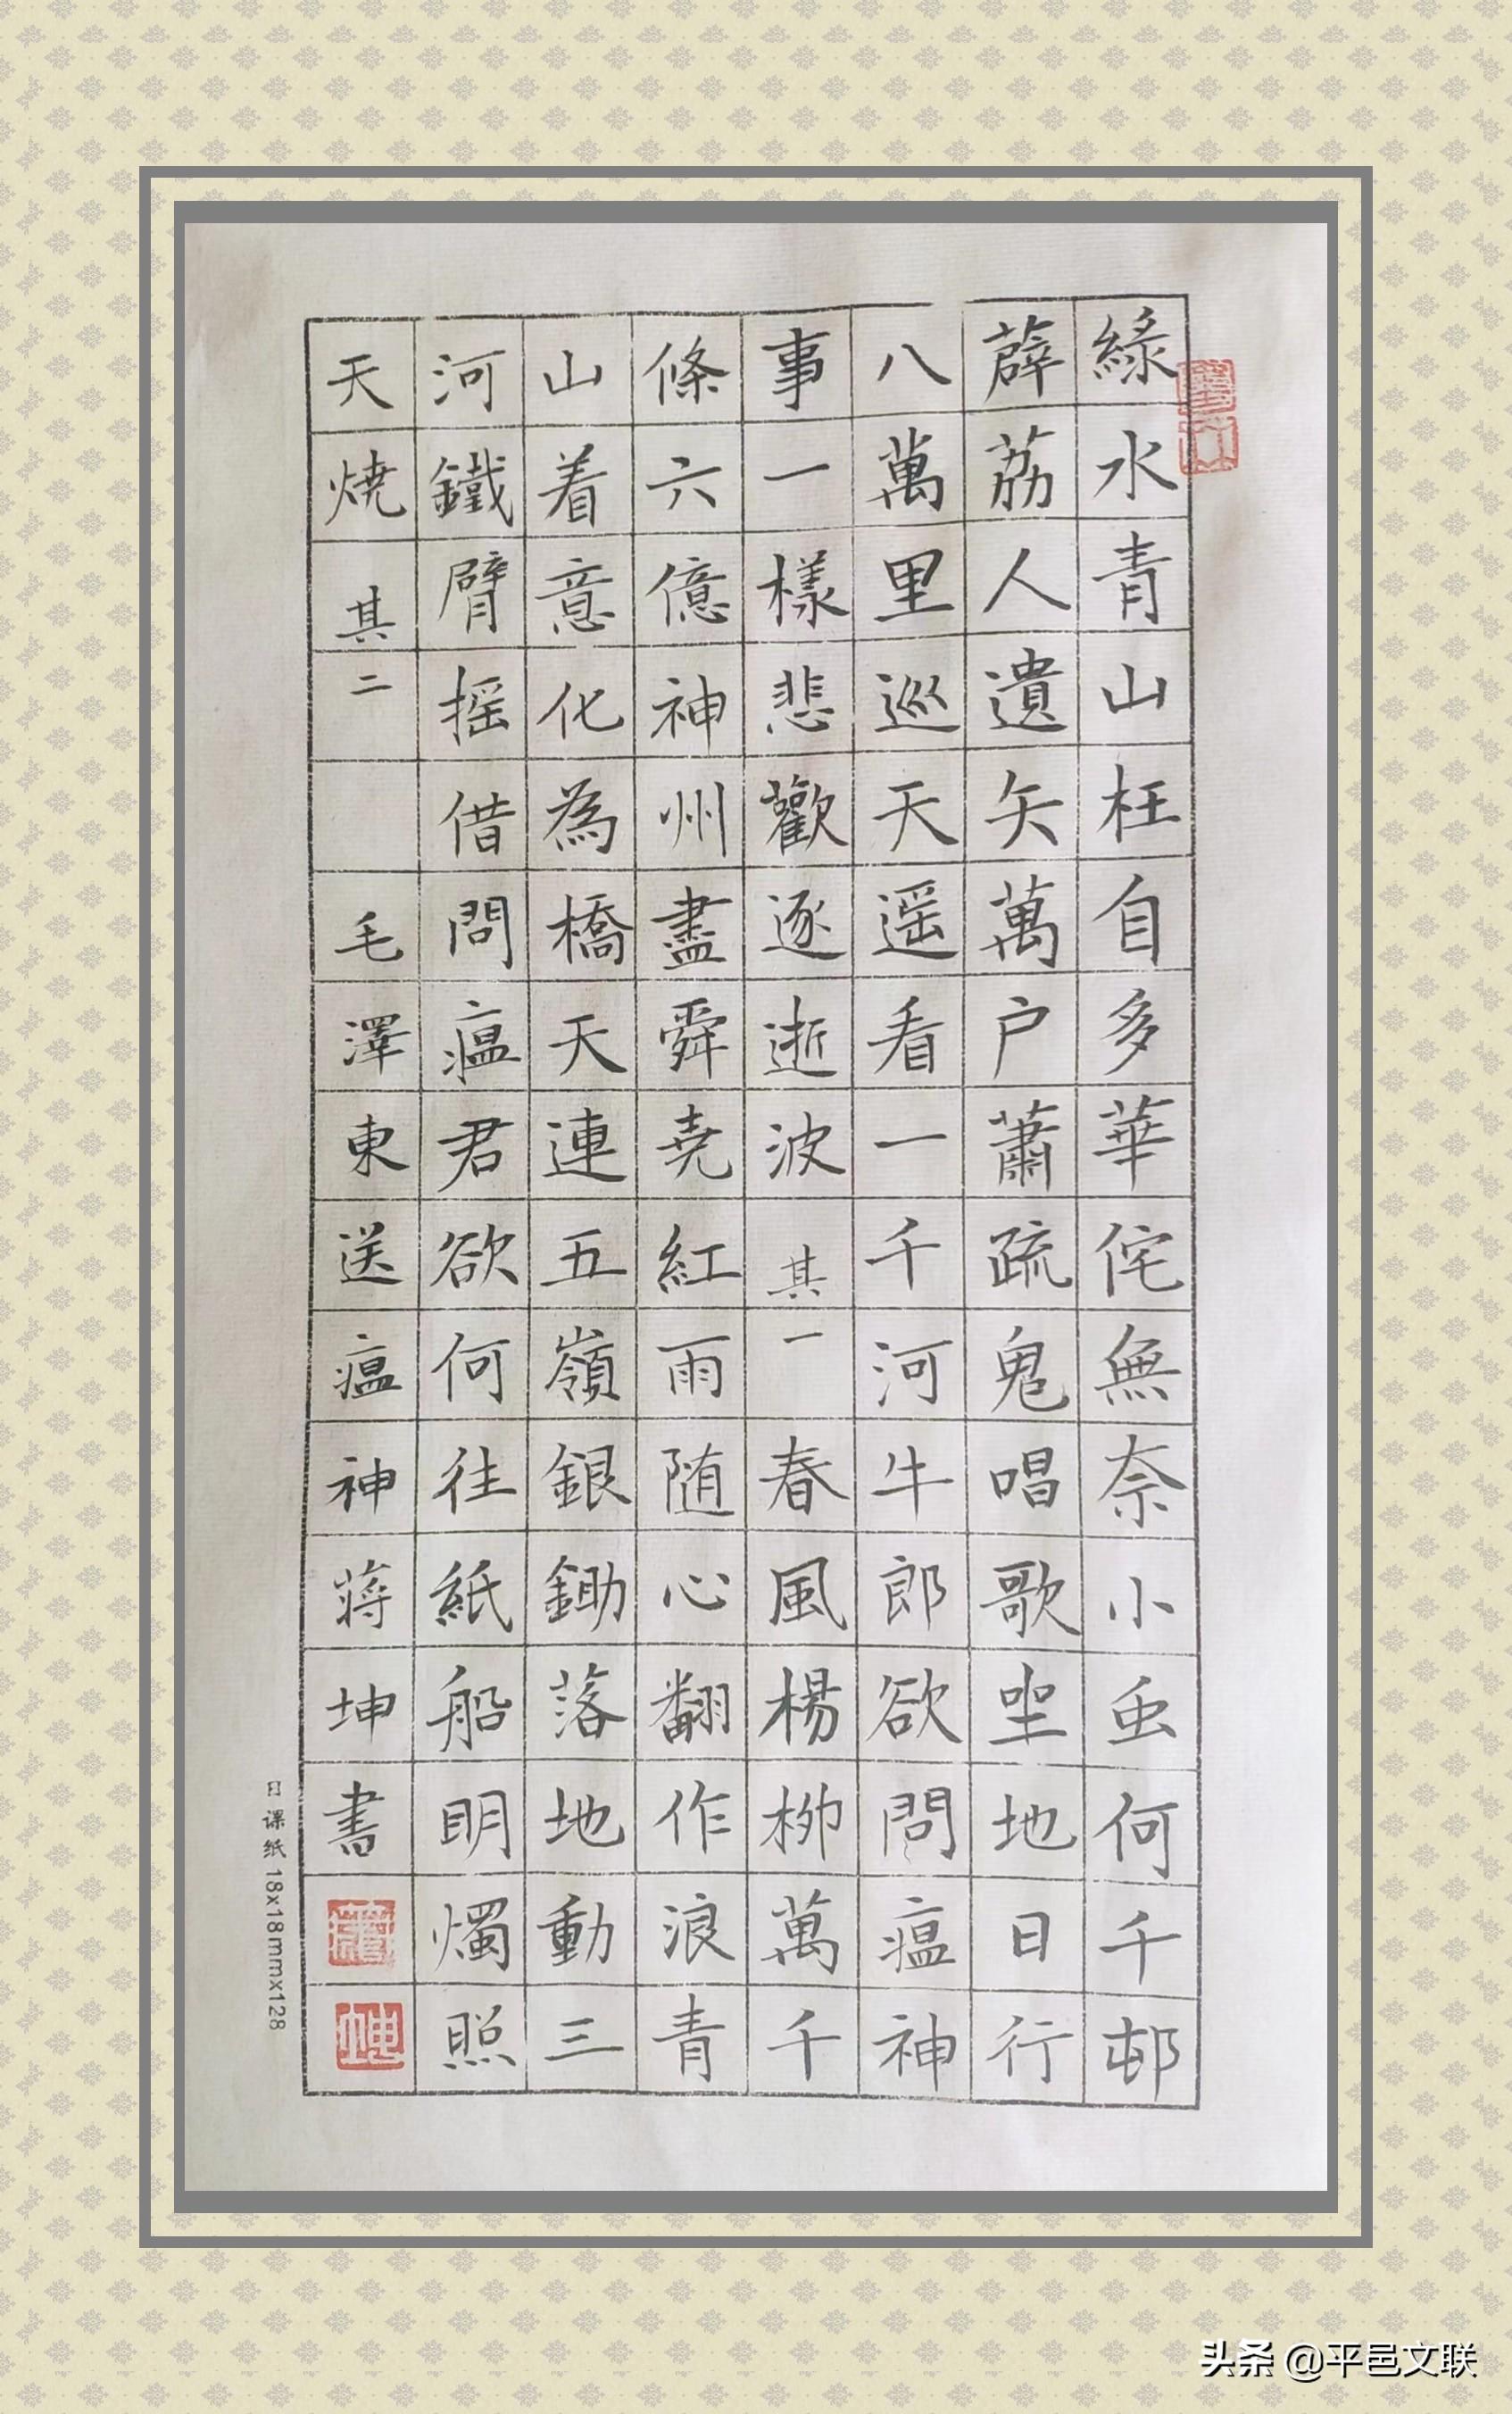 綠水青山枉自多華佗無奈小虫何千邨
薜荔人遺矢萬户蕭疏鬼唱歌坐地日行
八萬里巡天遥看一千河牛郎欲問瘟神
事一樣悲歡逐逝波其一春風楊柳萬千
條六億神州盡舜堯紅雨随心翻作浪青
山着意化為橋天連五嶺銀鋤落地動三
河鐵臂摇借問瘟君欲何往紙船明燭照
天燒 其二 毛澤東送瘟神蔣坤書
日课纸 18x18mmx128
头条 @平邑文联